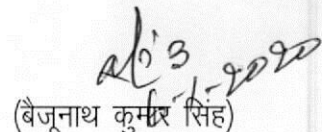 6-1-2020
(बैजूनाथ कुमार सिंह)